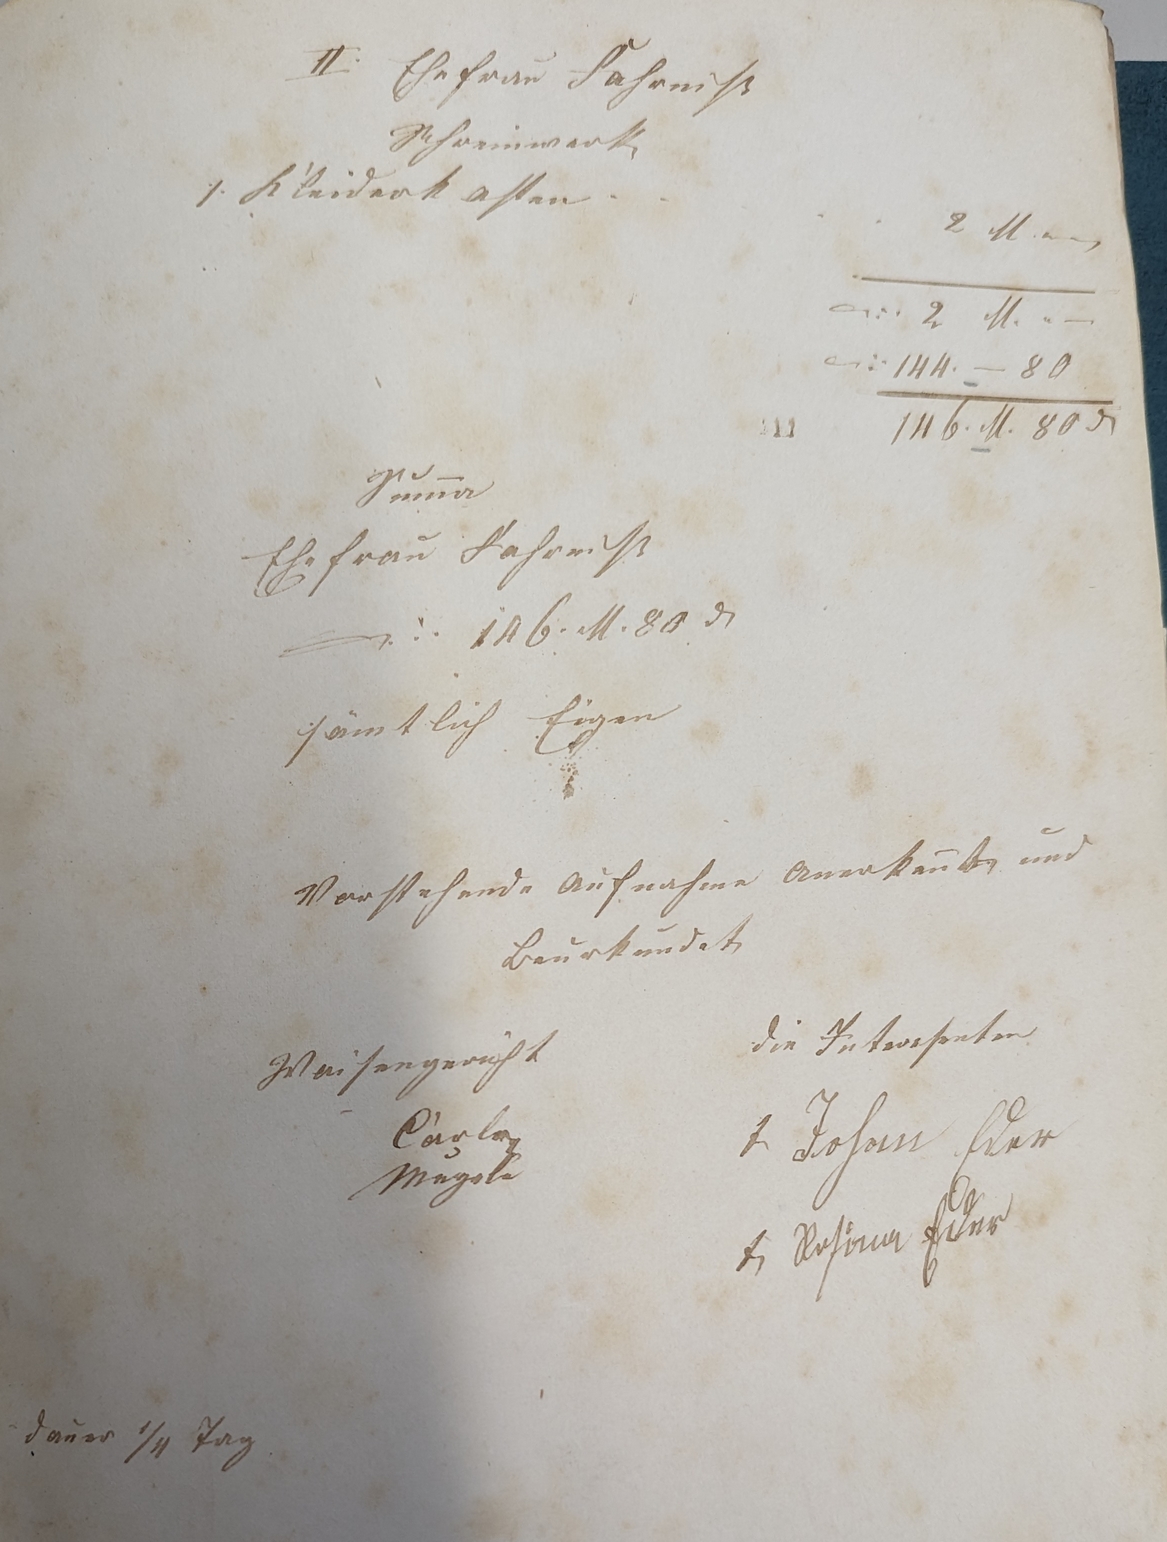 II. Ehefrau Fahrniß
Schreinwerk
1. Kleiderkasten . . . . 2 M. --
2 M. --
144. — 80
146. M. 80 d
Suma
Ehefrau Fahrniß
146. M. 80 d
sämtlich Eigen
Vorstehende Aufnahme Anerkannt und
Beurkundet
Waisengericht
die Interesenten
Carle
t Johan Eder
Mugele
t Rosina Eder
dauer 1/4 Tag